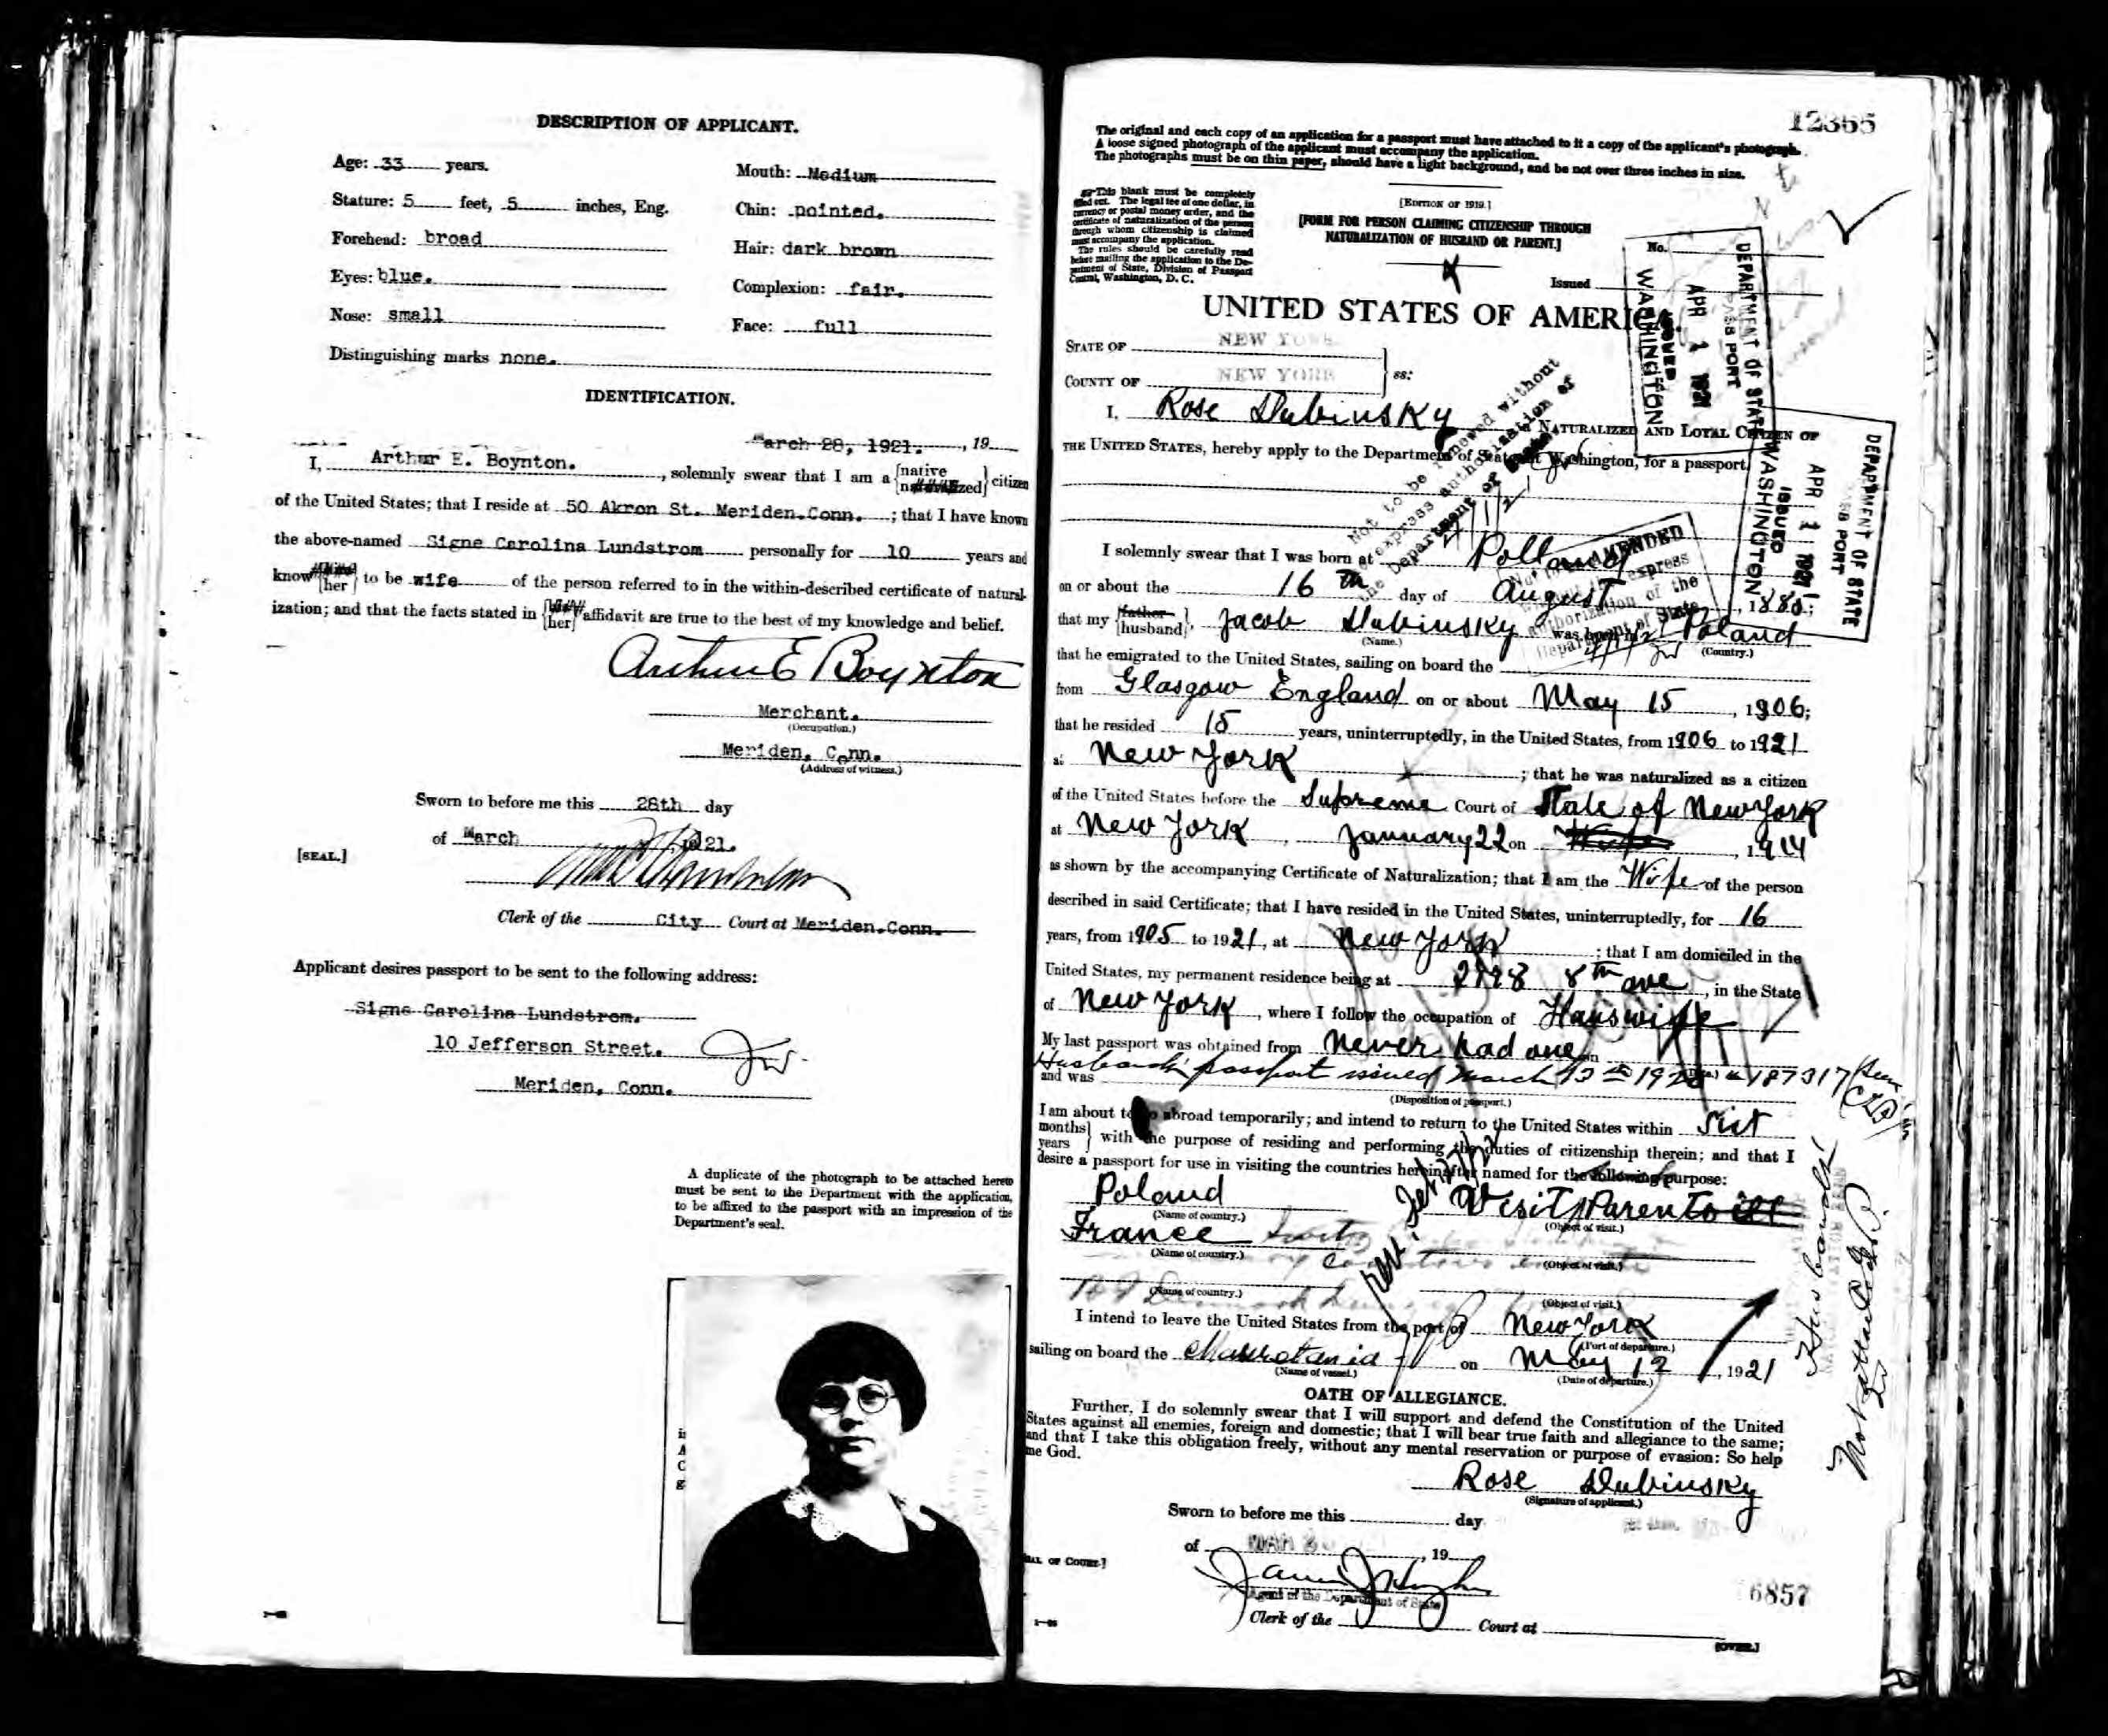 DESCRIPTION OF APPLICANT.
Age: 33 years.
Mouth: Medium
Stature: 5 feet, 5 inches, Eng.
Chin: pointed.
Forehead: broad
Hair: dark brown
Eyes: blue.
Complexion: fair.
Nose: small
Face: full
Distinguishing marks none.
IDENTIFICATION.
March 28, 1921. , 19
I, Arthur E. Boynton. , solemnly swear that I am a {native naturalized} citizen
of the United States; that I reside at 50 Akron St. Meriden.Conn. ; that I have known
the above-named Signe Carolina Lundstrom personally for 10 years and
know {her} to be wife of the person referred to in the within-described certificate of natural-
ization; and that the facts stated in {her} affidavit are true to the best of my knowledge and belief.
Arthur E Boynton
Merchant.
(Occupation.)
Meriden, Conn.
(Address of witness.)
Sworn to before me this 28th day
of March , 1921.
[SEAL.]
Clerk of the City Court at Meriden.Conn.
Applicant desires passport to be sent to the following address:
Signe Carolina Lundstrom.
10 Jefferson Street.
Meriden, Conn.
A duplicate of the photograph to be attached hereto
must be sent to the Department with the application,
to be affixed to the passport with an impression of the
Department's seal.
12365
The original and each copy of an application for a passport must have attached to it a copy of the applicant's photograph.
A loose signed photograph of the applicant must accompany the application.
The photographs must be on thin paper, should have a light background, and be not over three inches in size.
This blank must be completely
filled out. The legal fee of one dollar, in
currency or postal money order, and the
certificate of naturalization of the person
through whom citizenship is claimed
must accompany the application.
The rules should be carefully read
before mailing the application to the De-
partment of State, Division of Passport
Control, Washington, D. C.
[EDITION OF 1919.]
[FORM FOR PERSON CLAIMING CITIZENSHIP THROUGH
NATURALIZATION OF HUSBAND OR PARENT.]
No.
Issued
DEPARTMENT OF STATE
PASSPORT
APR 1 1921
ISSUED
WASHINGTON
UNITED STATES OF AMERICA
STATE OF NEW YORK
COUNTY OF NEW YORK
ss:
I, Rose Dubinsky , a NATURALIZED AND LOYAL CITIZEN OF
THE UNITED STATES, hereby apply to the Department of State at Washington, for a passport
Not to be renewed without
express authorization of
the Department of
DEPARTMENT OF STATE
PASSPORT
APR 1 1921
ISSUED
WASHINGTON
AMENDED
express
authorization of the
Department of State
I solemnly swear that I was born at Polland
on or about the 16 th day of August , 1880;
that my {father husband}, Jacob Dubinsky was born in Poland
(Name.) (Country.)
that he emigrated to the United States, sailing on board the
from Glasgow England on or about May 15 , 1906;
that he resided 15 years, uninterruptedly, in the United States, from 1906 to 1921
at New York ; that he was naturalized as a citizen
of the United States before the Supreme Court of State of New York
at New York , January 22 on Wife , 1914
as shown by the accompanying Certificate of Naturalization; that I am the Wife of the person
described in said Certificate; that I have resided in the United States, uninterruptedly, for 16
years, from 1905 to 1921, at New York ; that I am domiciled in the
United States, my permanent residence being at 8th ave , in the State
of New York , where I follow the occupation of Hauswife
My last passport was obtained from Never had one on
Husband's passport issued March 13th
and was
(Disposition of passport.)
I am about to go abroad temporarily; and intend to return to the United States within Sixt
{months years} with the purpose of residing and performing the duties of citizenship therein; and that I
desire a passport for use in visiting the countries hereinafter named for the following purpose:
Poland Visit Parents ill
(Name of country.) (Object of visit.)
France
(Name of country.) (Object of visit.)
(Name of country.) (Object of visit.)
I intend to leave the United States from the port of New York
(Port of departure.)
sailing on board the Mauretania on May 12 , 1921
(Name of vessel.) (Date of departure.)
OATH OF ALLEGIANCE.
Further, I do solemnly swear that I will support and defend the Constitution of the United
States against all enemies, foreign and domestic; that I will bear true faith and allegiance to the same;
and that I take this obligation freely, without any mental reservation or purpose of evasion: So help
me God.
Rose Dubinsky
(Signature of applicant.)
Sworn to before me this day
of MAR , 19
Agent of the Department of State
Clerk of the Court at
6857
[OVER.]